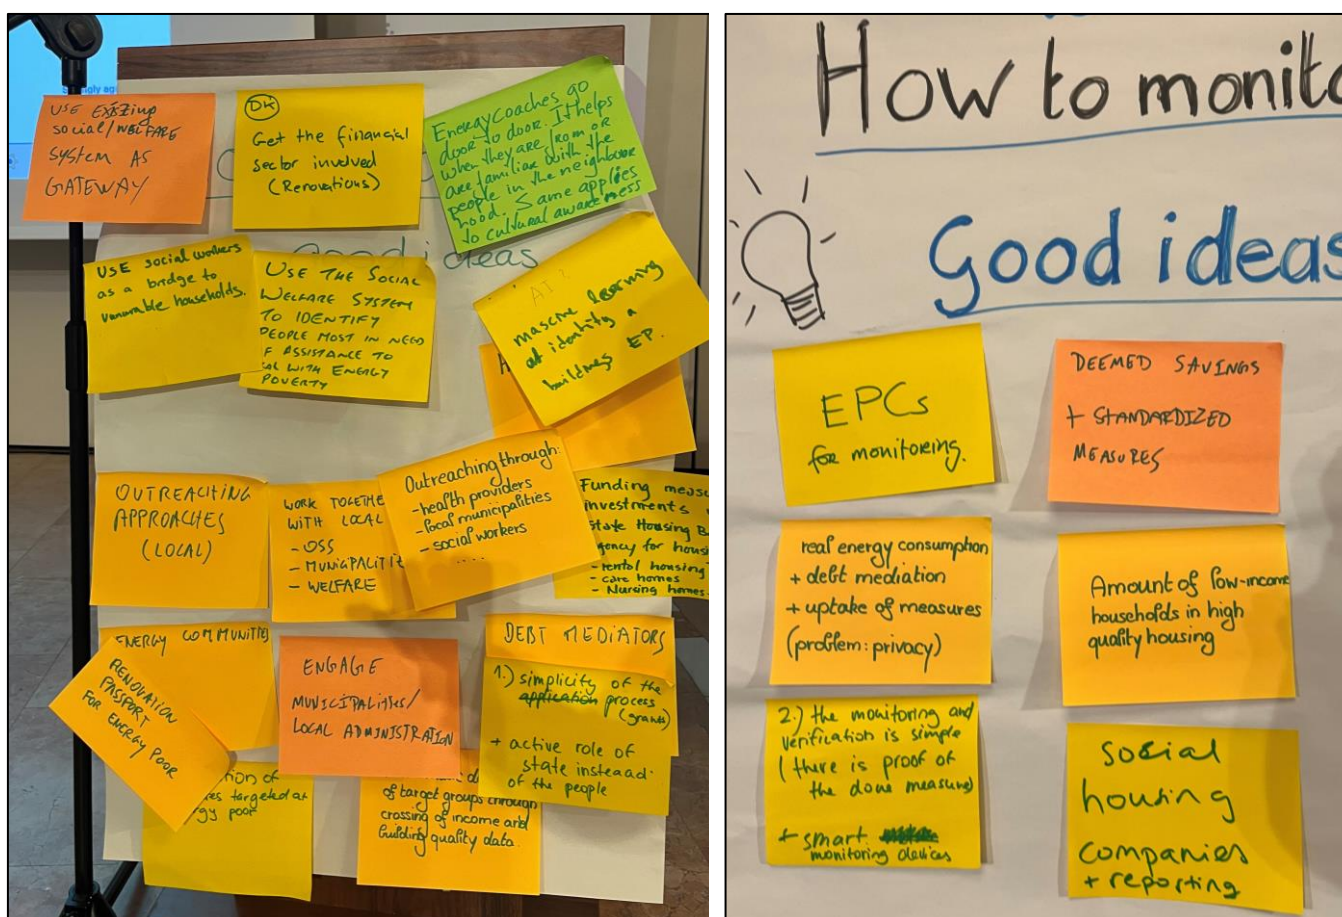 USE EXISTING
SOCIAL/WELFARE
SYSTEM AS
GATEWAY
DK
Get the financial
sector involved
(Renovations)
Energy coaches go
door to door. It helps
when they are from or
are familiar with the
people in the neighbour
hood. Same applies
to cultural awareness
Good ideas
USE social workers
as a bridge to
vunerable households.
USE THE SOCIAL
WELFARE SYSTEM
TO IDENTIFY
PEOPLE MOST IN NEED
F ASSISTANCE TO
WITH ENERGY
POVERTY
AI?
mascine learning
at identity a
buildnes EP.
A
OUTREACHING
APPROACHES
(LOCAL)
WORK TOGETHE
WITH LOCAL
- OSS
- MUNICIPALITIE
- WELFARE
Outreaching through:
- health providers
- local municipalities
- social workers
....
Funding measu
investments
State Housing B
gency for hous
- rental housing
- care homes
- Nursing homes
ENERGY COMMUNITIES
RENOVATION
PASSPORT
FOR ENERGY POOR
ENGAGE
MUNICIPALITIES/
LOCAL ADMINISTRATION
DEBT MEDIATORS
1.) simplicity of the
application process
(grants)
+ active role of
state instead
of the people
tion of
es targeted at
gy poor
of target groups through
crossing of income and
building quality data.
How to monito
Good ideas
EPCs
for monitoreing.
DEEMED SAVINGS
+ STANDARDIZED
MEASURES
real energy consumption
+ debt mediation
+ uptake of measures
(problem: privacy)
Amount of low-income
households in high
quality housing
2.) the monitoring and
verification is simple
(there is proof of
the done measure)
+ smart
monitoring devices
social
housing
companies
+ reporting